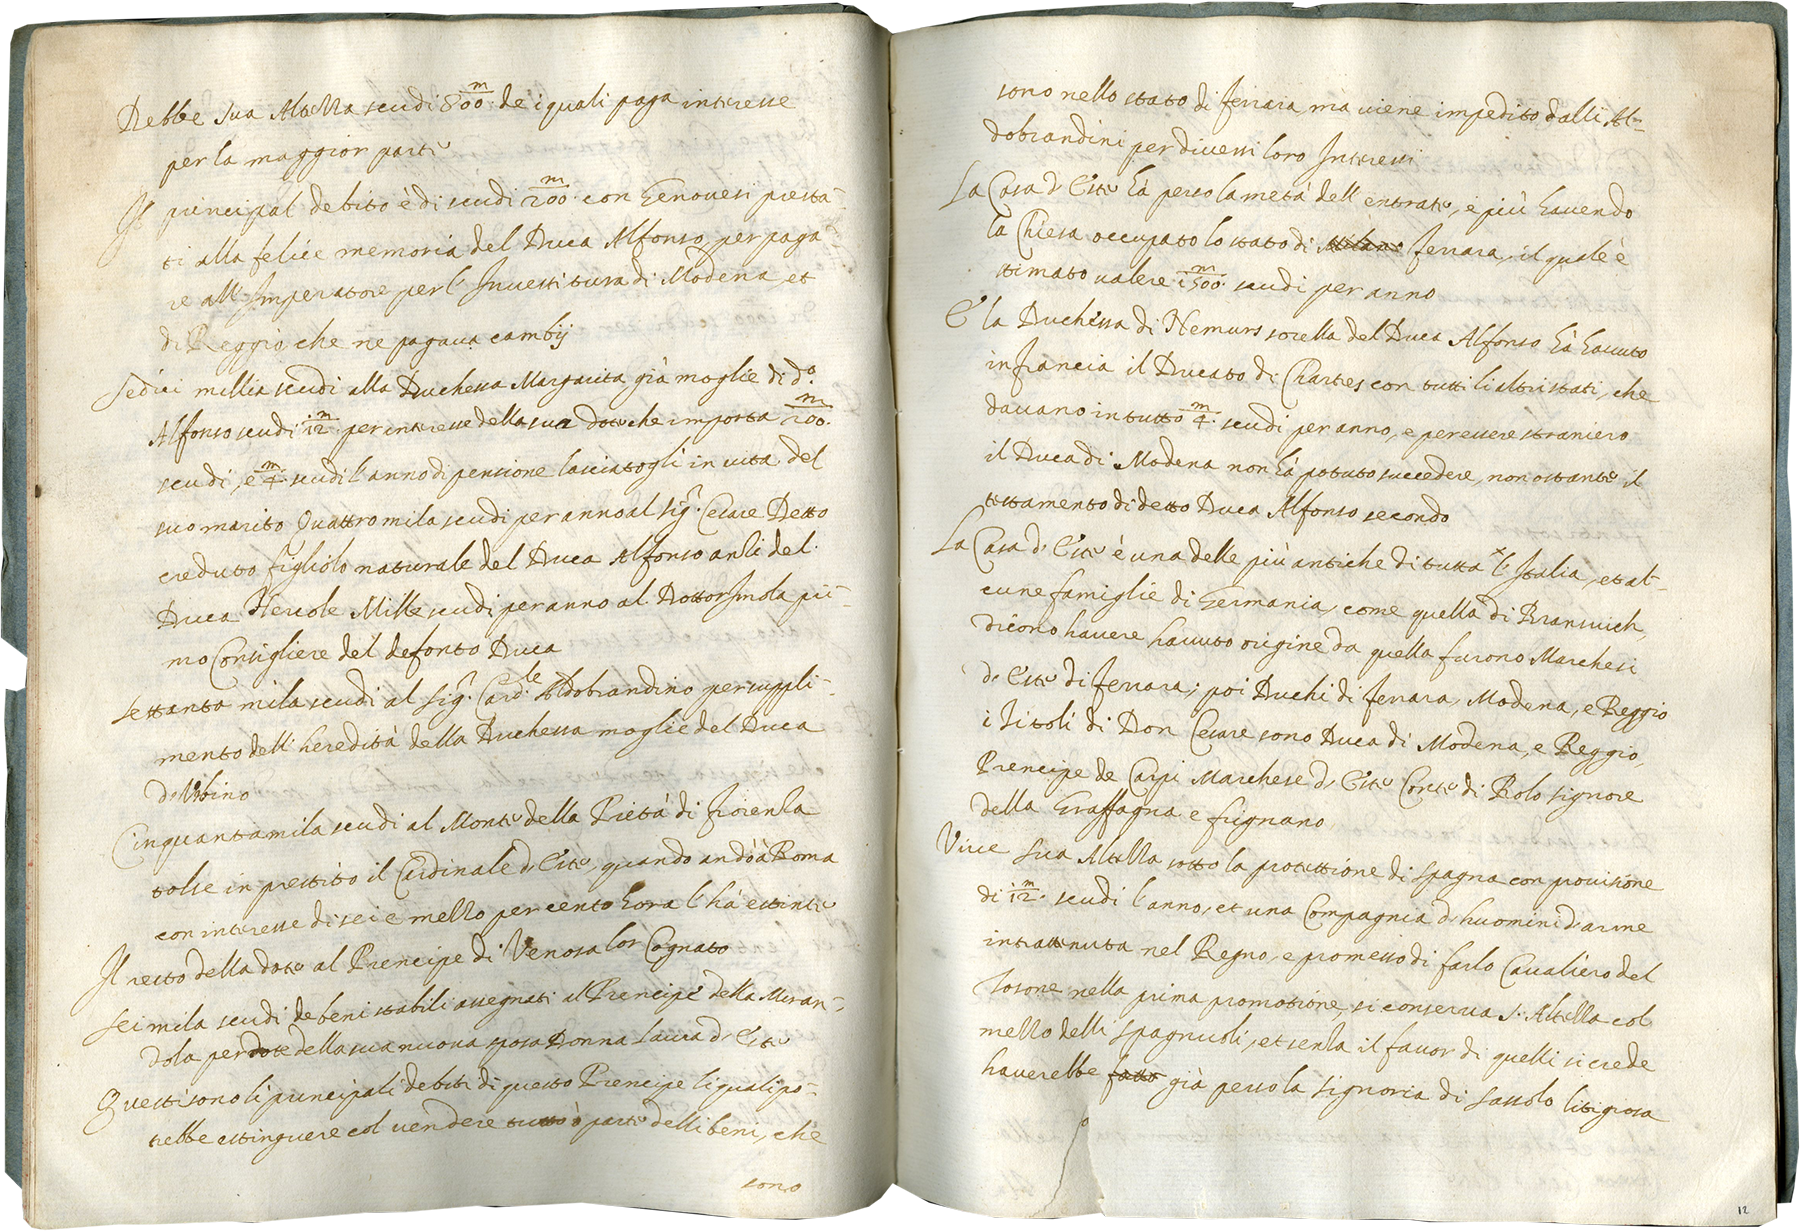 Debbe sua Altezza scudi 800 m de i quali paga interesse
per la maggior parte
Il principal debito è di scudi 200 m con Genovesi presta-
ti alla felice memoria del Duca Alfonso, per paga
re all'Imperatore per l'Investitura di Modena, et
di Reggio che ne pagava cambij
sedici millia scudi alla Duchessa Margarita, già moglie di d.o
Alfonso scudi 12 m per interesse della sua dote che importa 200 m
scudi, e 4 m scudi l'anno di pensione lasciatogli in vita del
suo marito Quattro mila scudi per anno al sig.r Cesare Detto
creduto figliolo naturale del Duca Alfonso anzi del
Duca Hercole Mille scudi per anno al Dottor Imola pri-
mo Consigliere del defonto Duca
settanta mila scudi al sig.r Card.le Aldobrandino per suppli-
mento dell'heredità della Duchessa moglie del Duca
d'Urbino
Cinquanta mila scudi al Monte della Pietà di Fiorenza
tolse in prestito il Cardinale d'Este, quando andò à Roma
con interesse di sei e mezzo per cento hora l'hà estinto
Il resto della dote al Prencipe di Venosa lor Cognato
Sei mila scudi de beni stabili assegnati al Prencipe della Miran-
dola per dote della sua nuova sposa Donna Laura d'Este
Questi sono li principali debiti di questo Prencipe li quali po-
trebbe estinguere col vendere tutto ò parte delli beni, che
sono
sono nello stato di ferrara, ma viene impedito dalli Al-
dobrandini per diversi loro Interessi
La Casa d'Este hà perso la metà dell'entrate, e più havendo
la Chiesa occupato lo stato di Milano ferrara, il quale è
stimato valere 1500 m scudi per anno
E la Duchessa di Nemurs sorella del Duca Alfonso hà havuto
in francia il Ducato di Chartes con tutti li altri stati, che
davano in tutto 4 m scudi per anno, e per essere straniero
il Duca di Modena non hà potuto succedere, non ostante il
testamento di detto Duca Alfonso secondo
La Casa d'Este è una delle più antiche di tutta l'Italia, et al-
cune famiglie di Germania, come quella di Bransuich,
dicono havere havuto origine da quella furono Marchesi
d'Este di ferrara; poi Duchi di ferrara, Modena, e Reggio
i Titoli di Don Cesare sono Duca di Modena, e Reggio,
Prencipe de Carpi Marchese d'Este Conte di Rolo signore
della Graffagna e frignano
Vive sua Altezza sotto la protettione di spagna con provisione
di 12 m scudi l'anno, et una Compagnia d'huomini d'arme
intrattenuta nel Regno, e promesso di farlo Cavaliero del
Tosone nella prima promotione, si conserva S. Altezza col
mezzo delli spagnuoli, et senza il favor di quelli si crede
haverebbe fatto già perso la signoria di sassolo litigiosa
12